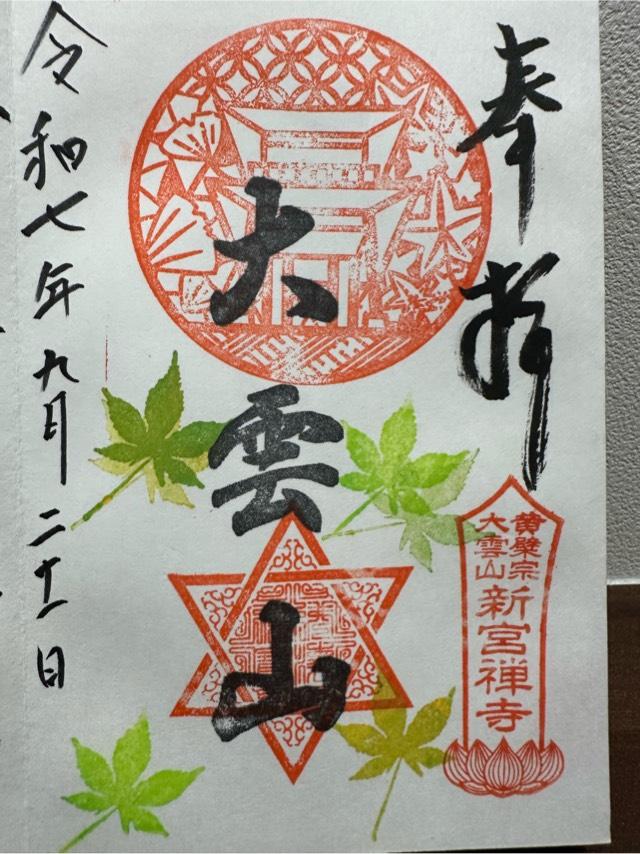 奉拝
黄檗宗
大雲山
新宮禅寺
大雲山
令和七年九月二十一日